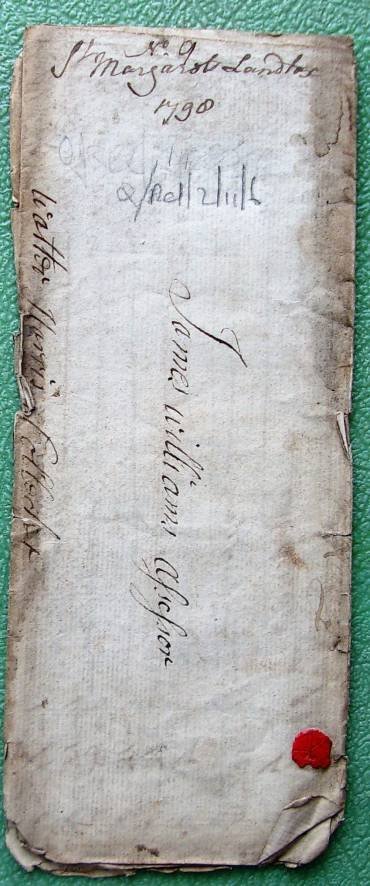 No. 9
St Margarets Landtax
1798
Q/Rel/2/11/6
James Williams Assessor
Walter Harris Collector